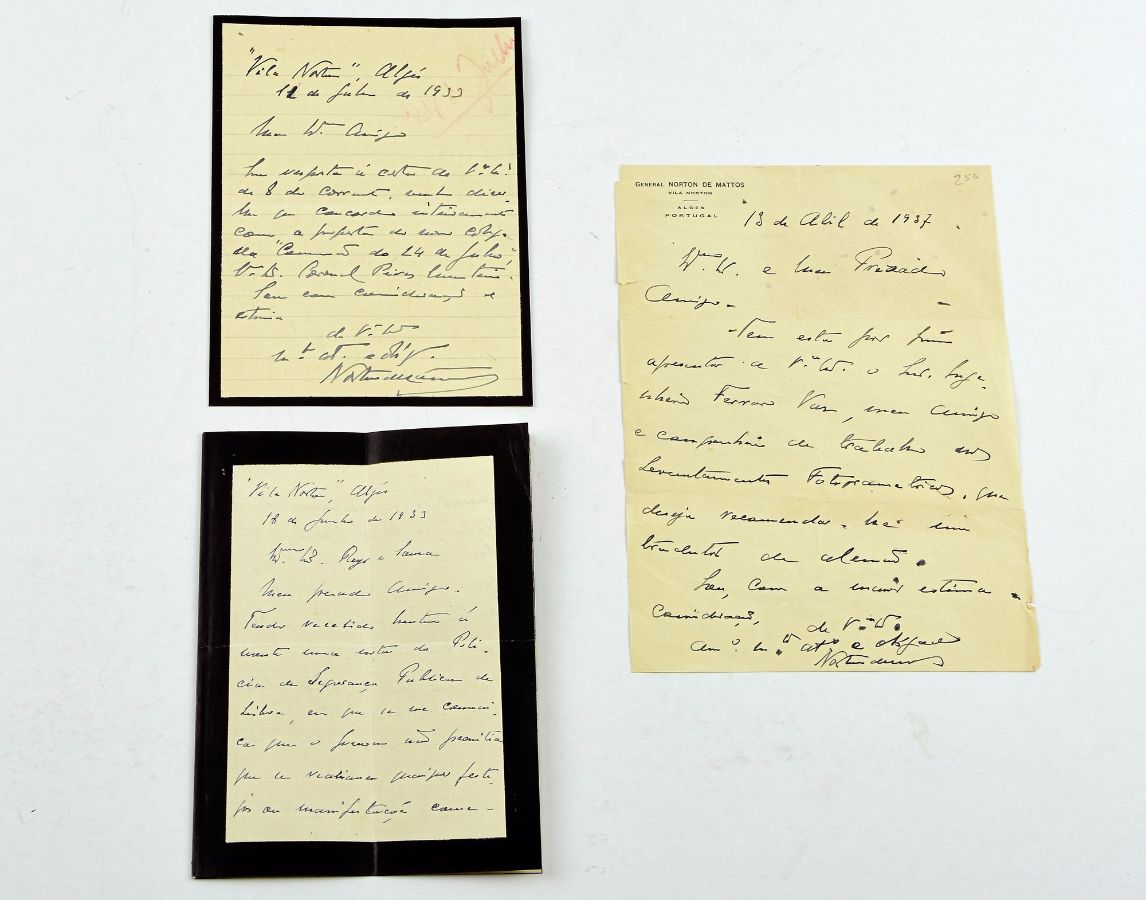 "Vila Norton", Algés
12 de Julho de 1933
Meu Ex.mo Amigo
Em resposta á carta de V.a Ex.a
de 8 do corrente, venho dizer-
lhe que concordo inteiramente
com a proposta do nosso colega
da "Comissão do 14 de Julho",
Ex.mo Sr. Coronel Pires Monteiro.
Sou com consideração e
estima
de V.a Ex.a
m.to at. e obg.
Norton de Mattos
Julho
"Vila Norton", Algés
18 de Junho de 1933
Ex.mo Sr.
Meu prezado Amigo.
Tendo recebido
uma nota da Poli-
cia de Segurança Publica de
Lisboa, em que se me comuni-
ca que o Governo não permitia
que se realizassem quaisquer feste-
jos ou manifestações come-
254
GENERAL NORTON DE MATTOS
VILA NORTON
ALGÉS
PORTUGAL
13 de Abril de 1937
Ex.mo Sr. e meu Prezado
Amigo.
Tem esta por fim
apresentar a V.a Ex.a o Snr. Enge-
nheiro Ferraro Vaz, meu amigo
e companheiro de trabalho nos
Levantamentos Fotogrametricos, que
deseja recomendar-lhe um
tradutor de alemão.
Sou, com a maior estima e
consideração,
de V.a Ex.a
am.o m.to at.o e obrigado
Norton de Mattos